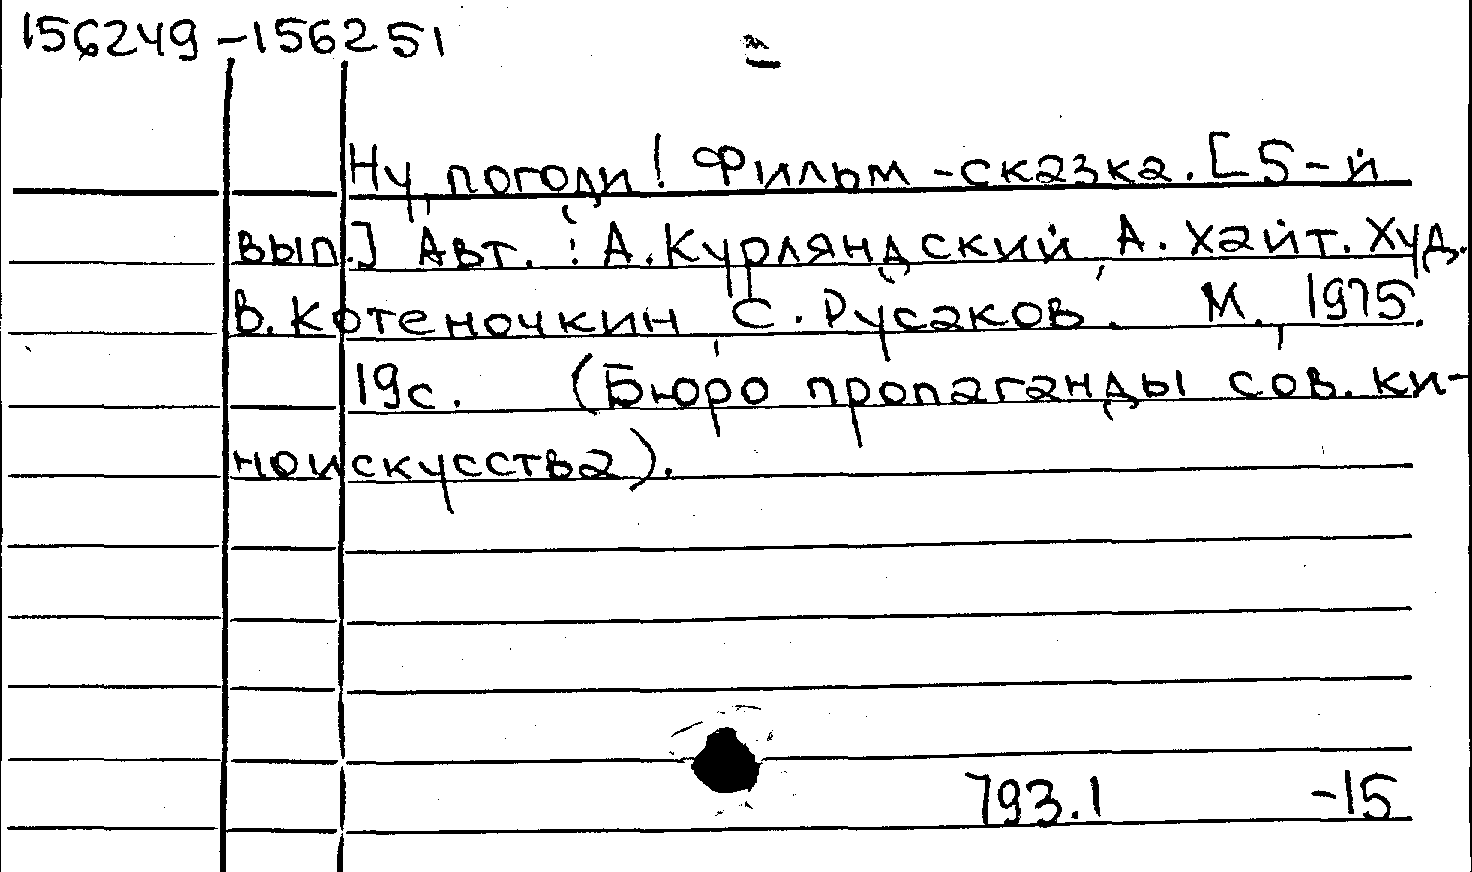 156249-156251
Ну, погоди! Фильм-сказка. [5-й
вып.] Авт.: А.Курляндский, А.Хайт. Худ.
В.Котеночкин, С.Русаков. М., 1975.
19с. (Бюро пропаганды сов. ки-
ноискусства).
793.1 -15